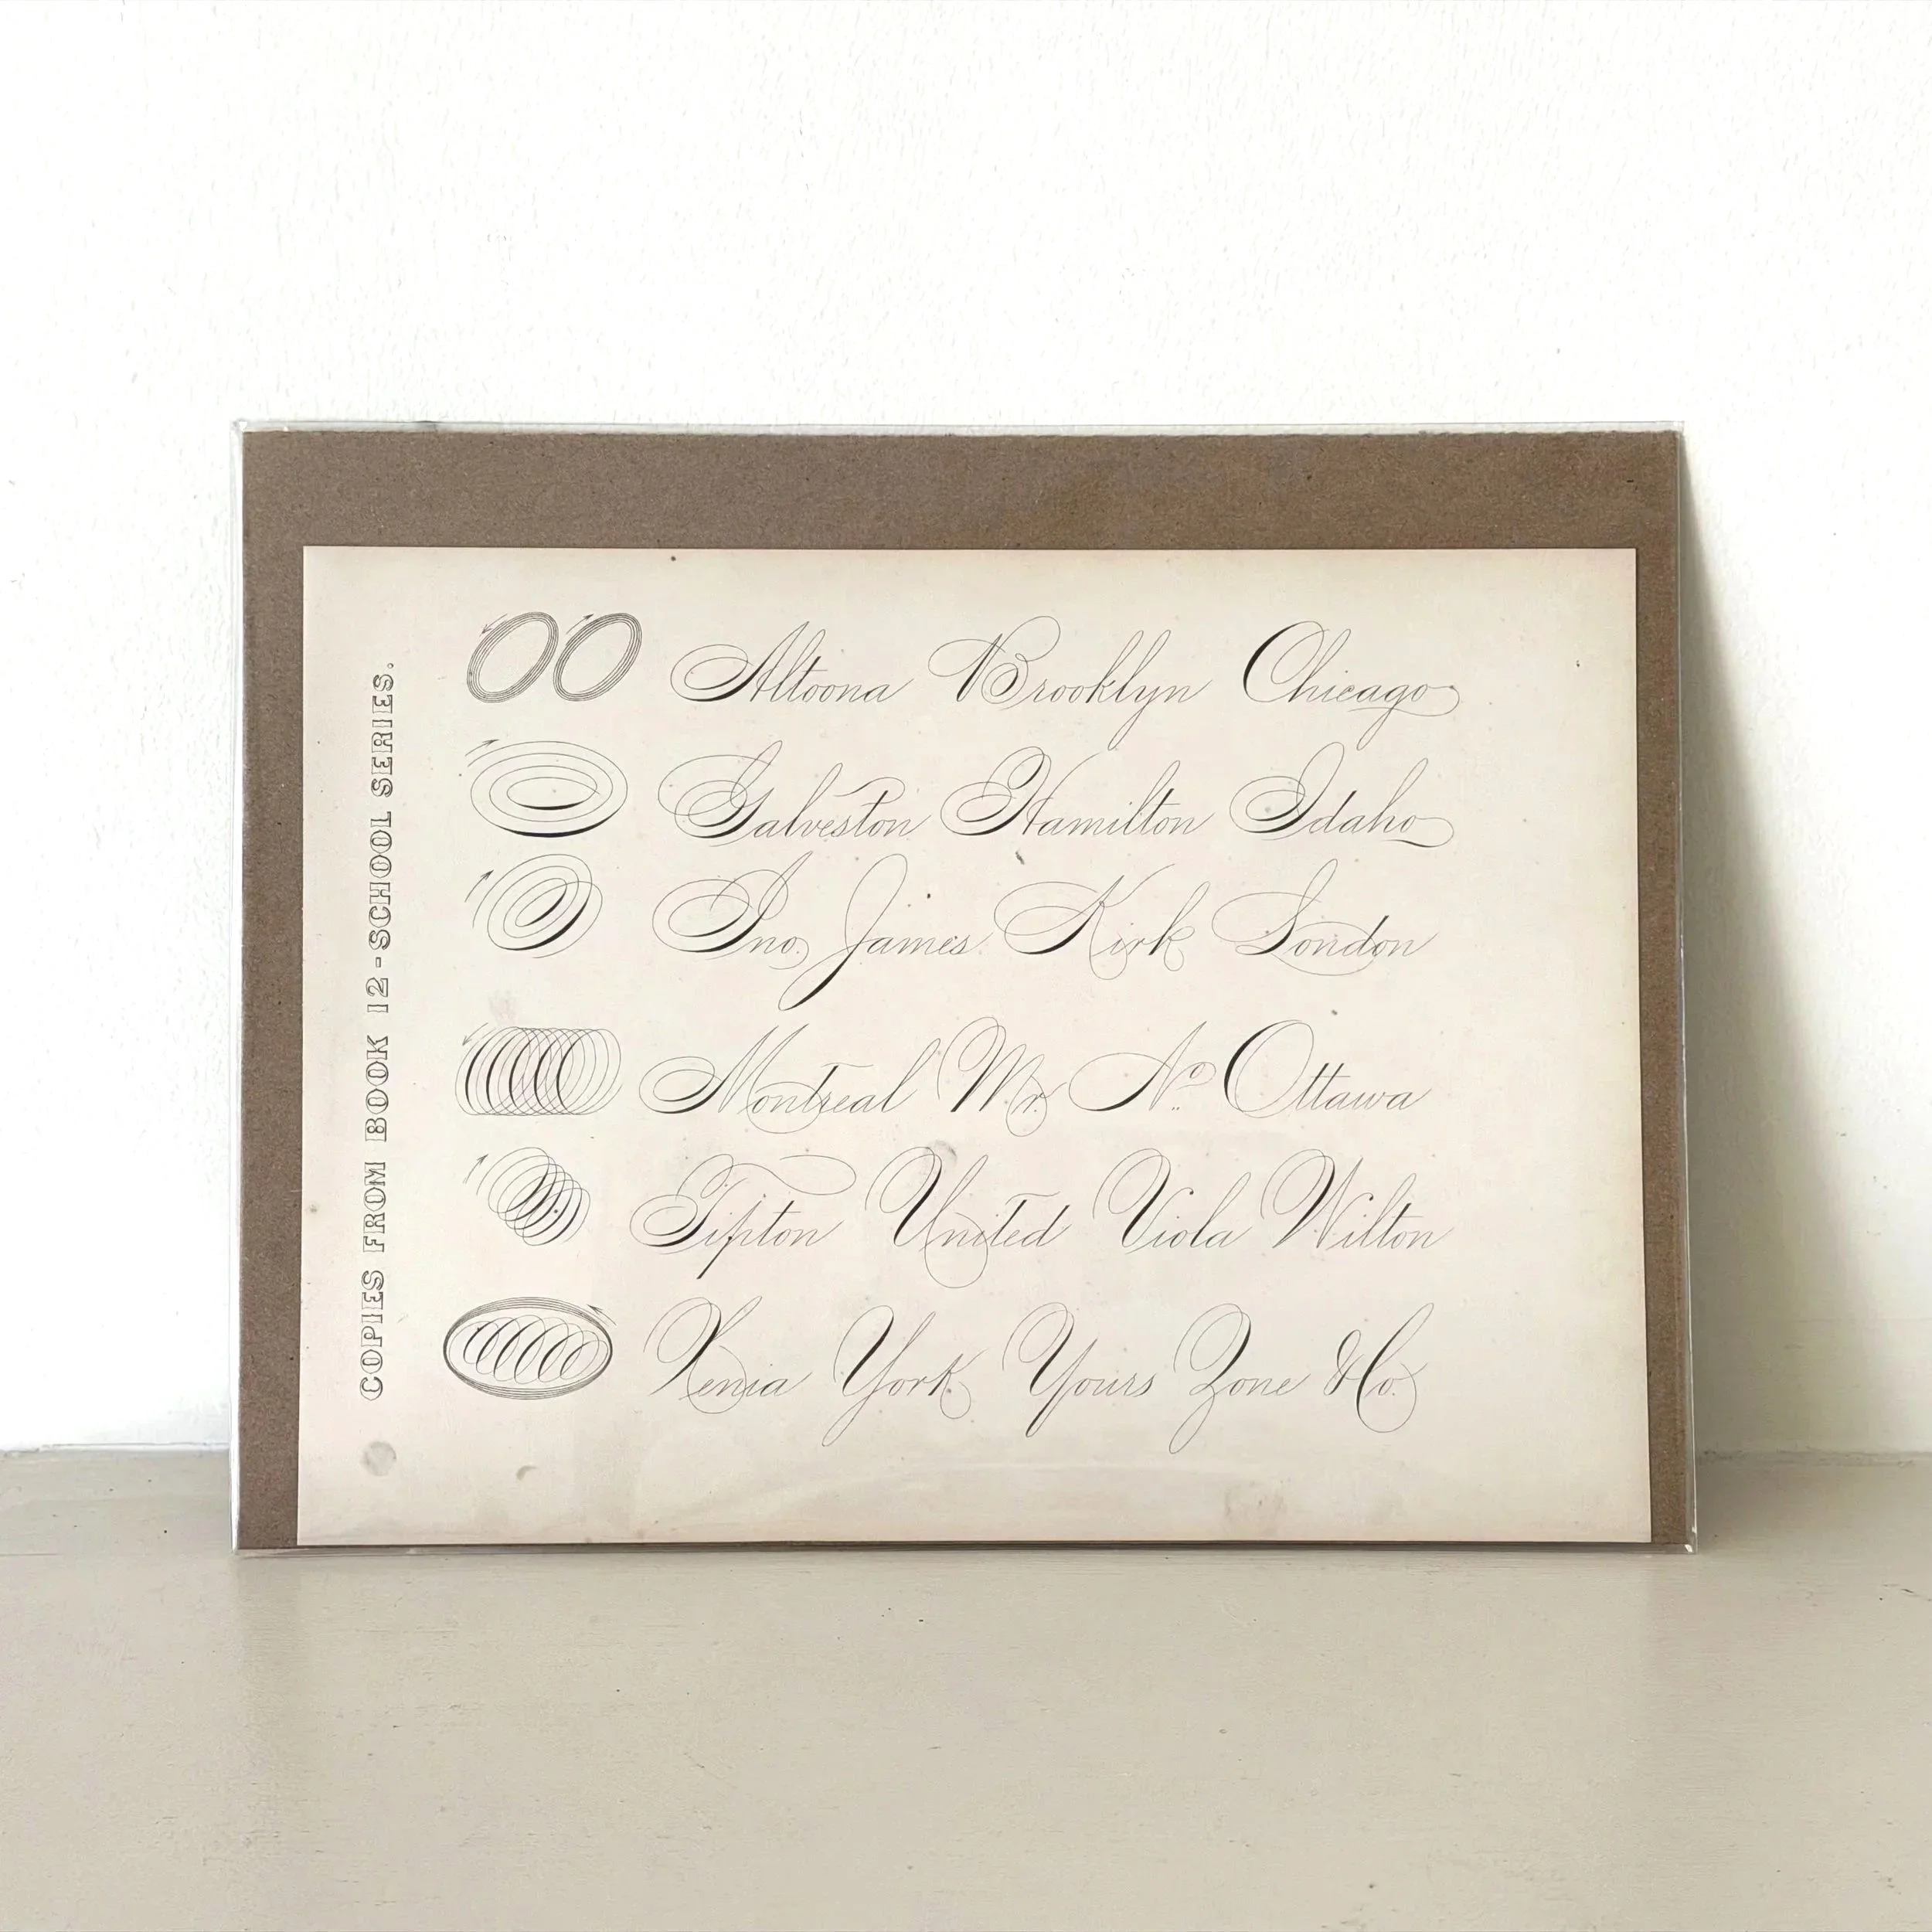 COPIES FROM BOOK 12-SCHOOL SERIES.
Altoona Brooklyn Chicago
Galveston Hamilton Idaho
Jno. James Kirk London
Montreal Mr. No. Ottawa
Tipton United Viola Wilton
Xenia York Yours Zone & Co.